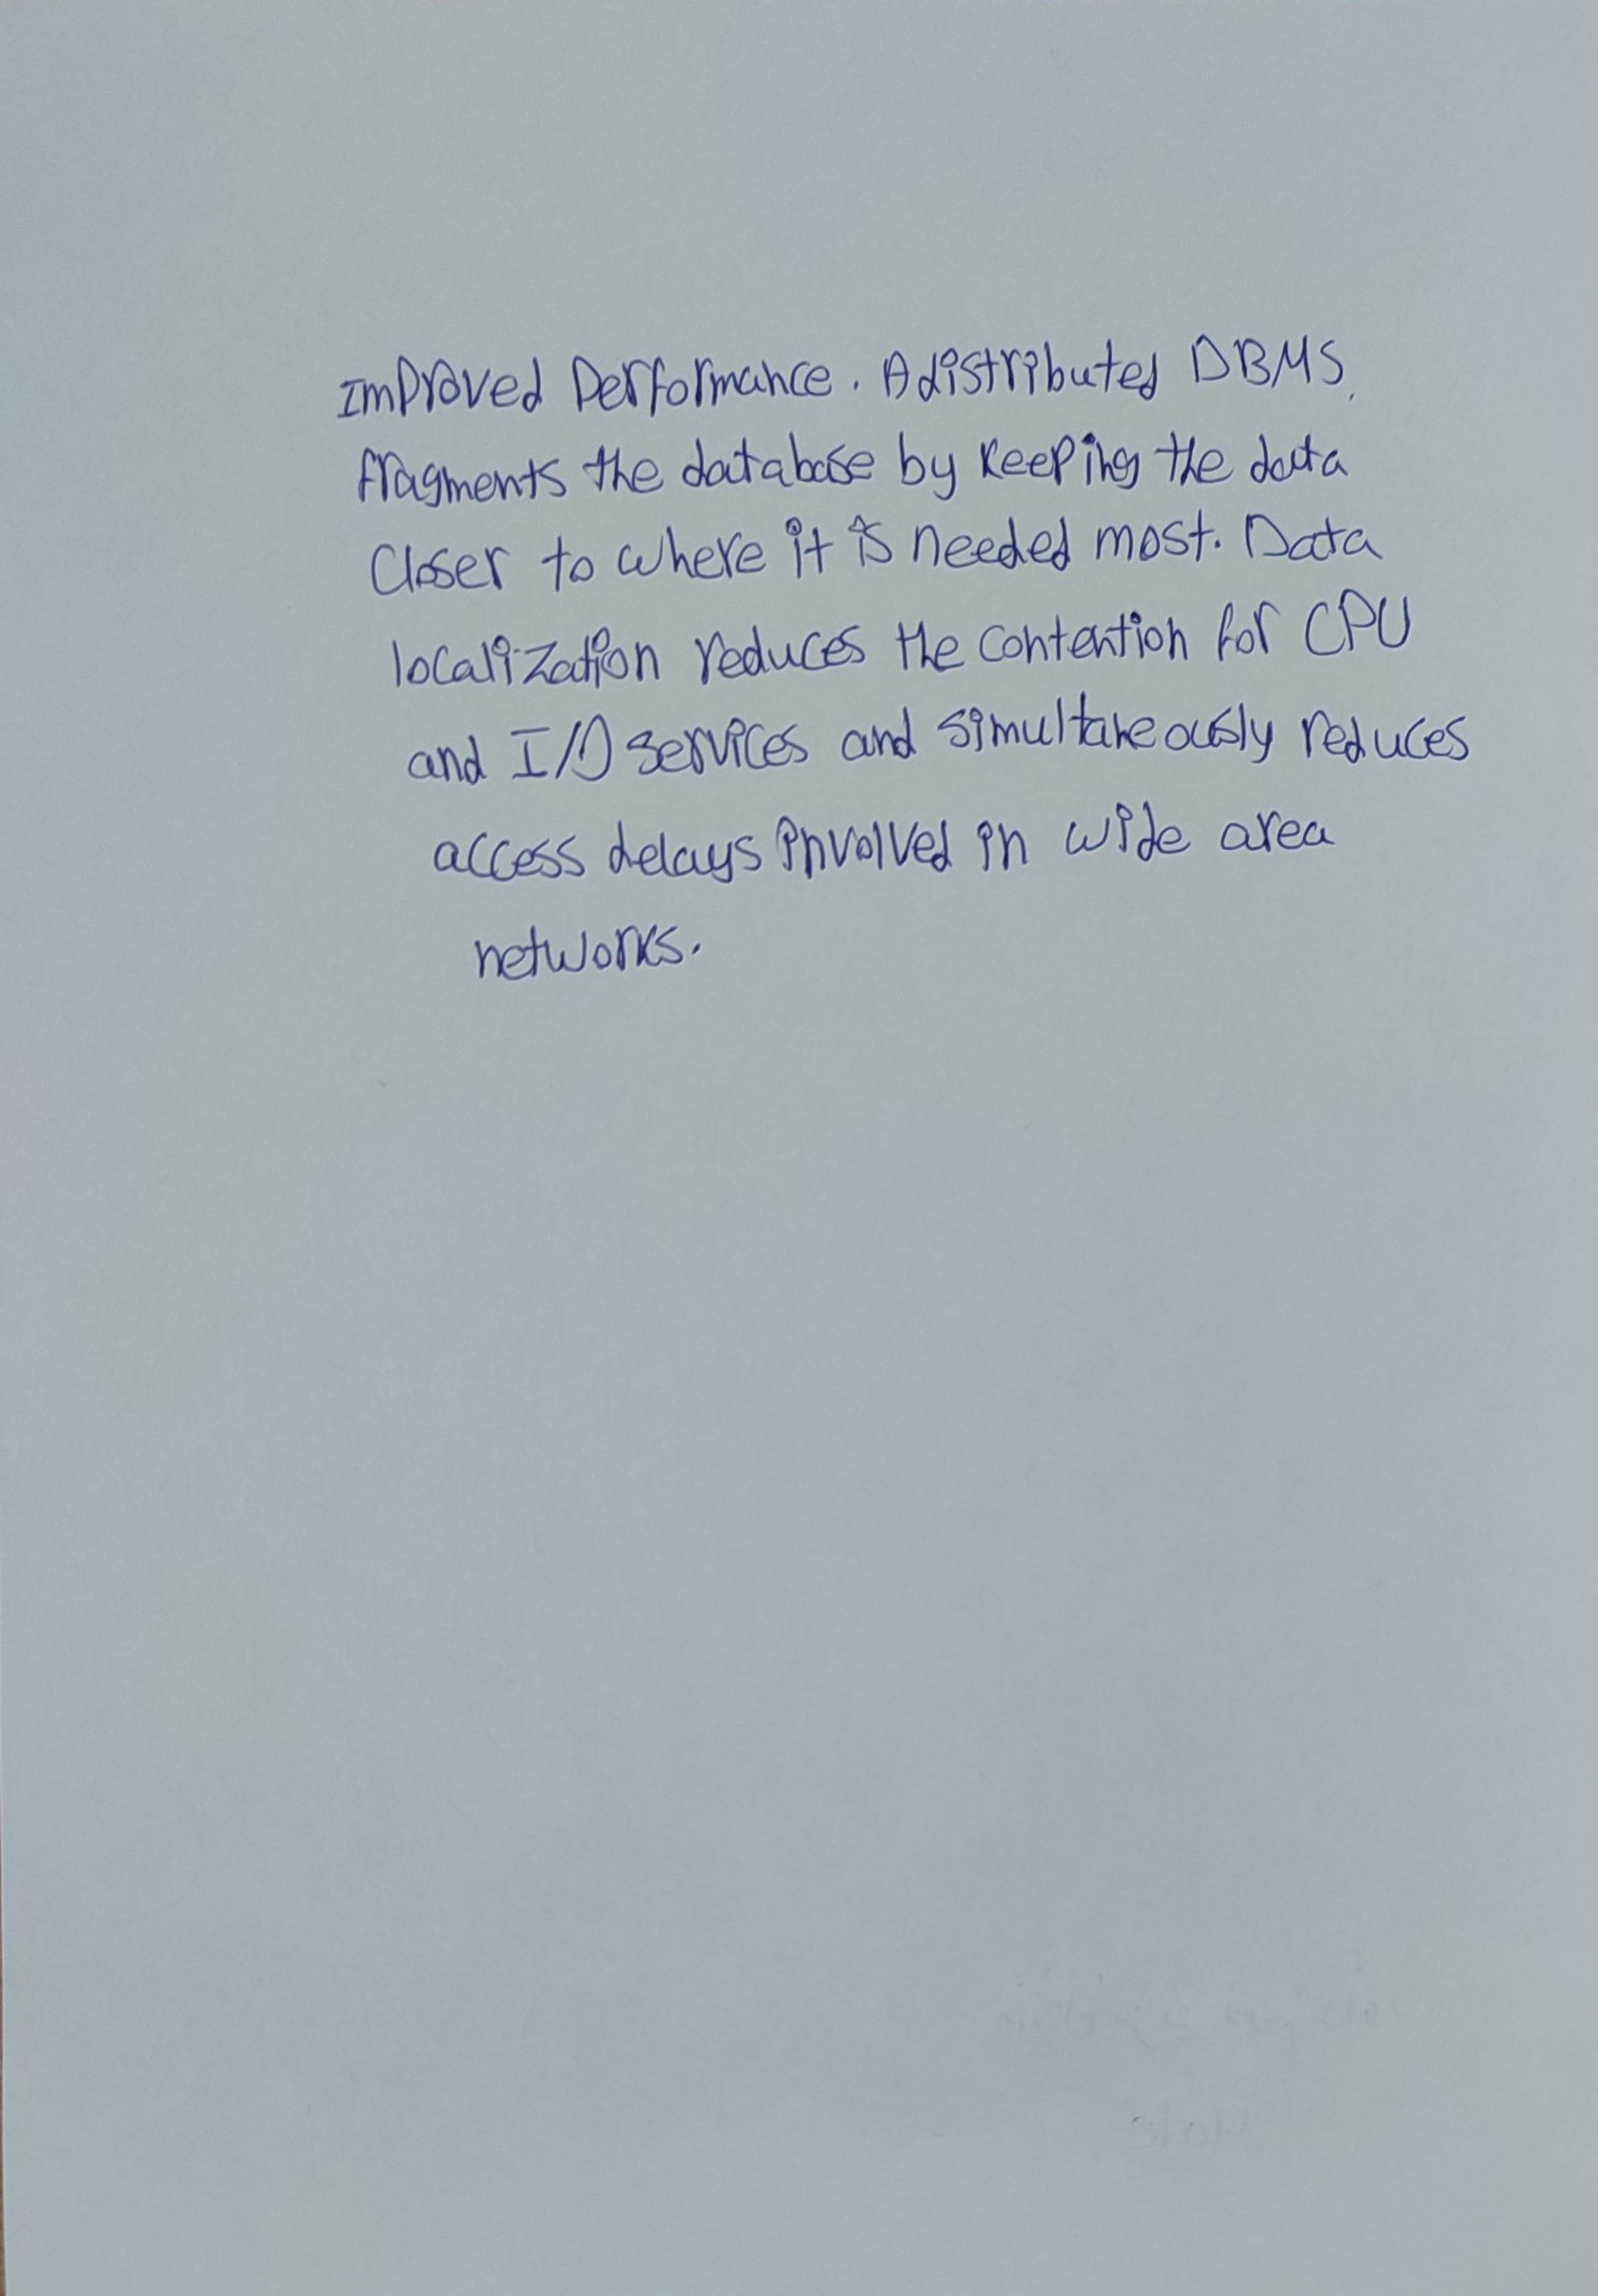 Improved Performance. A distributed DBMS
fragments the database by keeping the data
closer to where it is needed most. Data
localization reduces the contention for CPU
and I/O services and simultaneously reduces
access delays involved in wide area
networks.